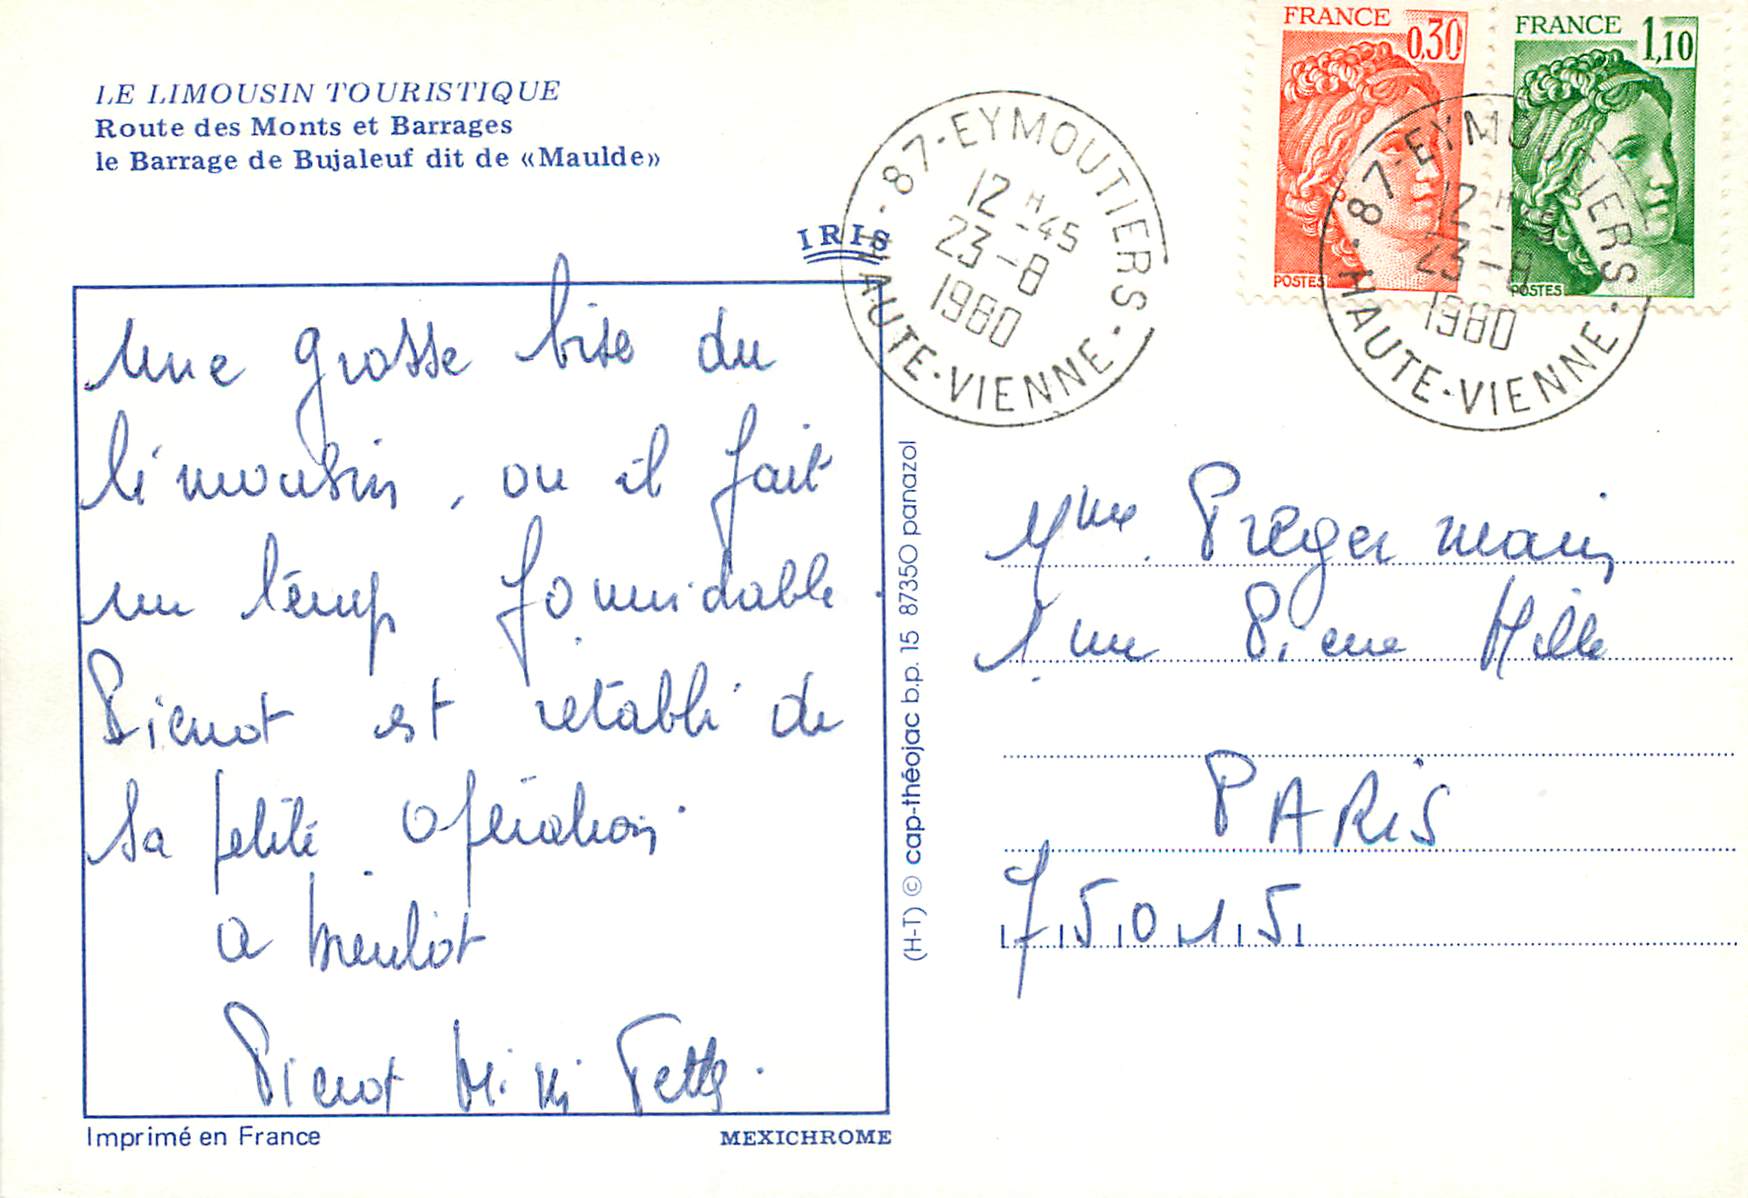 LE LIMOUSIN TOURISTIQUE
Route des Monts et Barrages
le Barrage de Bujaleuf dit de «Maulde»
IRIS
Une grosse bise du
limousin, ou il fait
un temp formidable.
Pierrot est rétabli de
sa petite opération
a bientot
Pierrot Mimi
Imprimé en France
MEXICHROME
(H-T) © cap-théojac b.p. 15 87350 panazol
87-EYMOUTIERS
12 H -45
23-8
1980
HAUTE-VIENNE
FRANCE
0,30
POSTES
FRANCE
1,10
POSTES
87-EYMOUTIERS
12 H -45
23-8
1980
HAUTE-VIENNE
Mme Preger
1 rue Pierre Mille
PARIS
75015